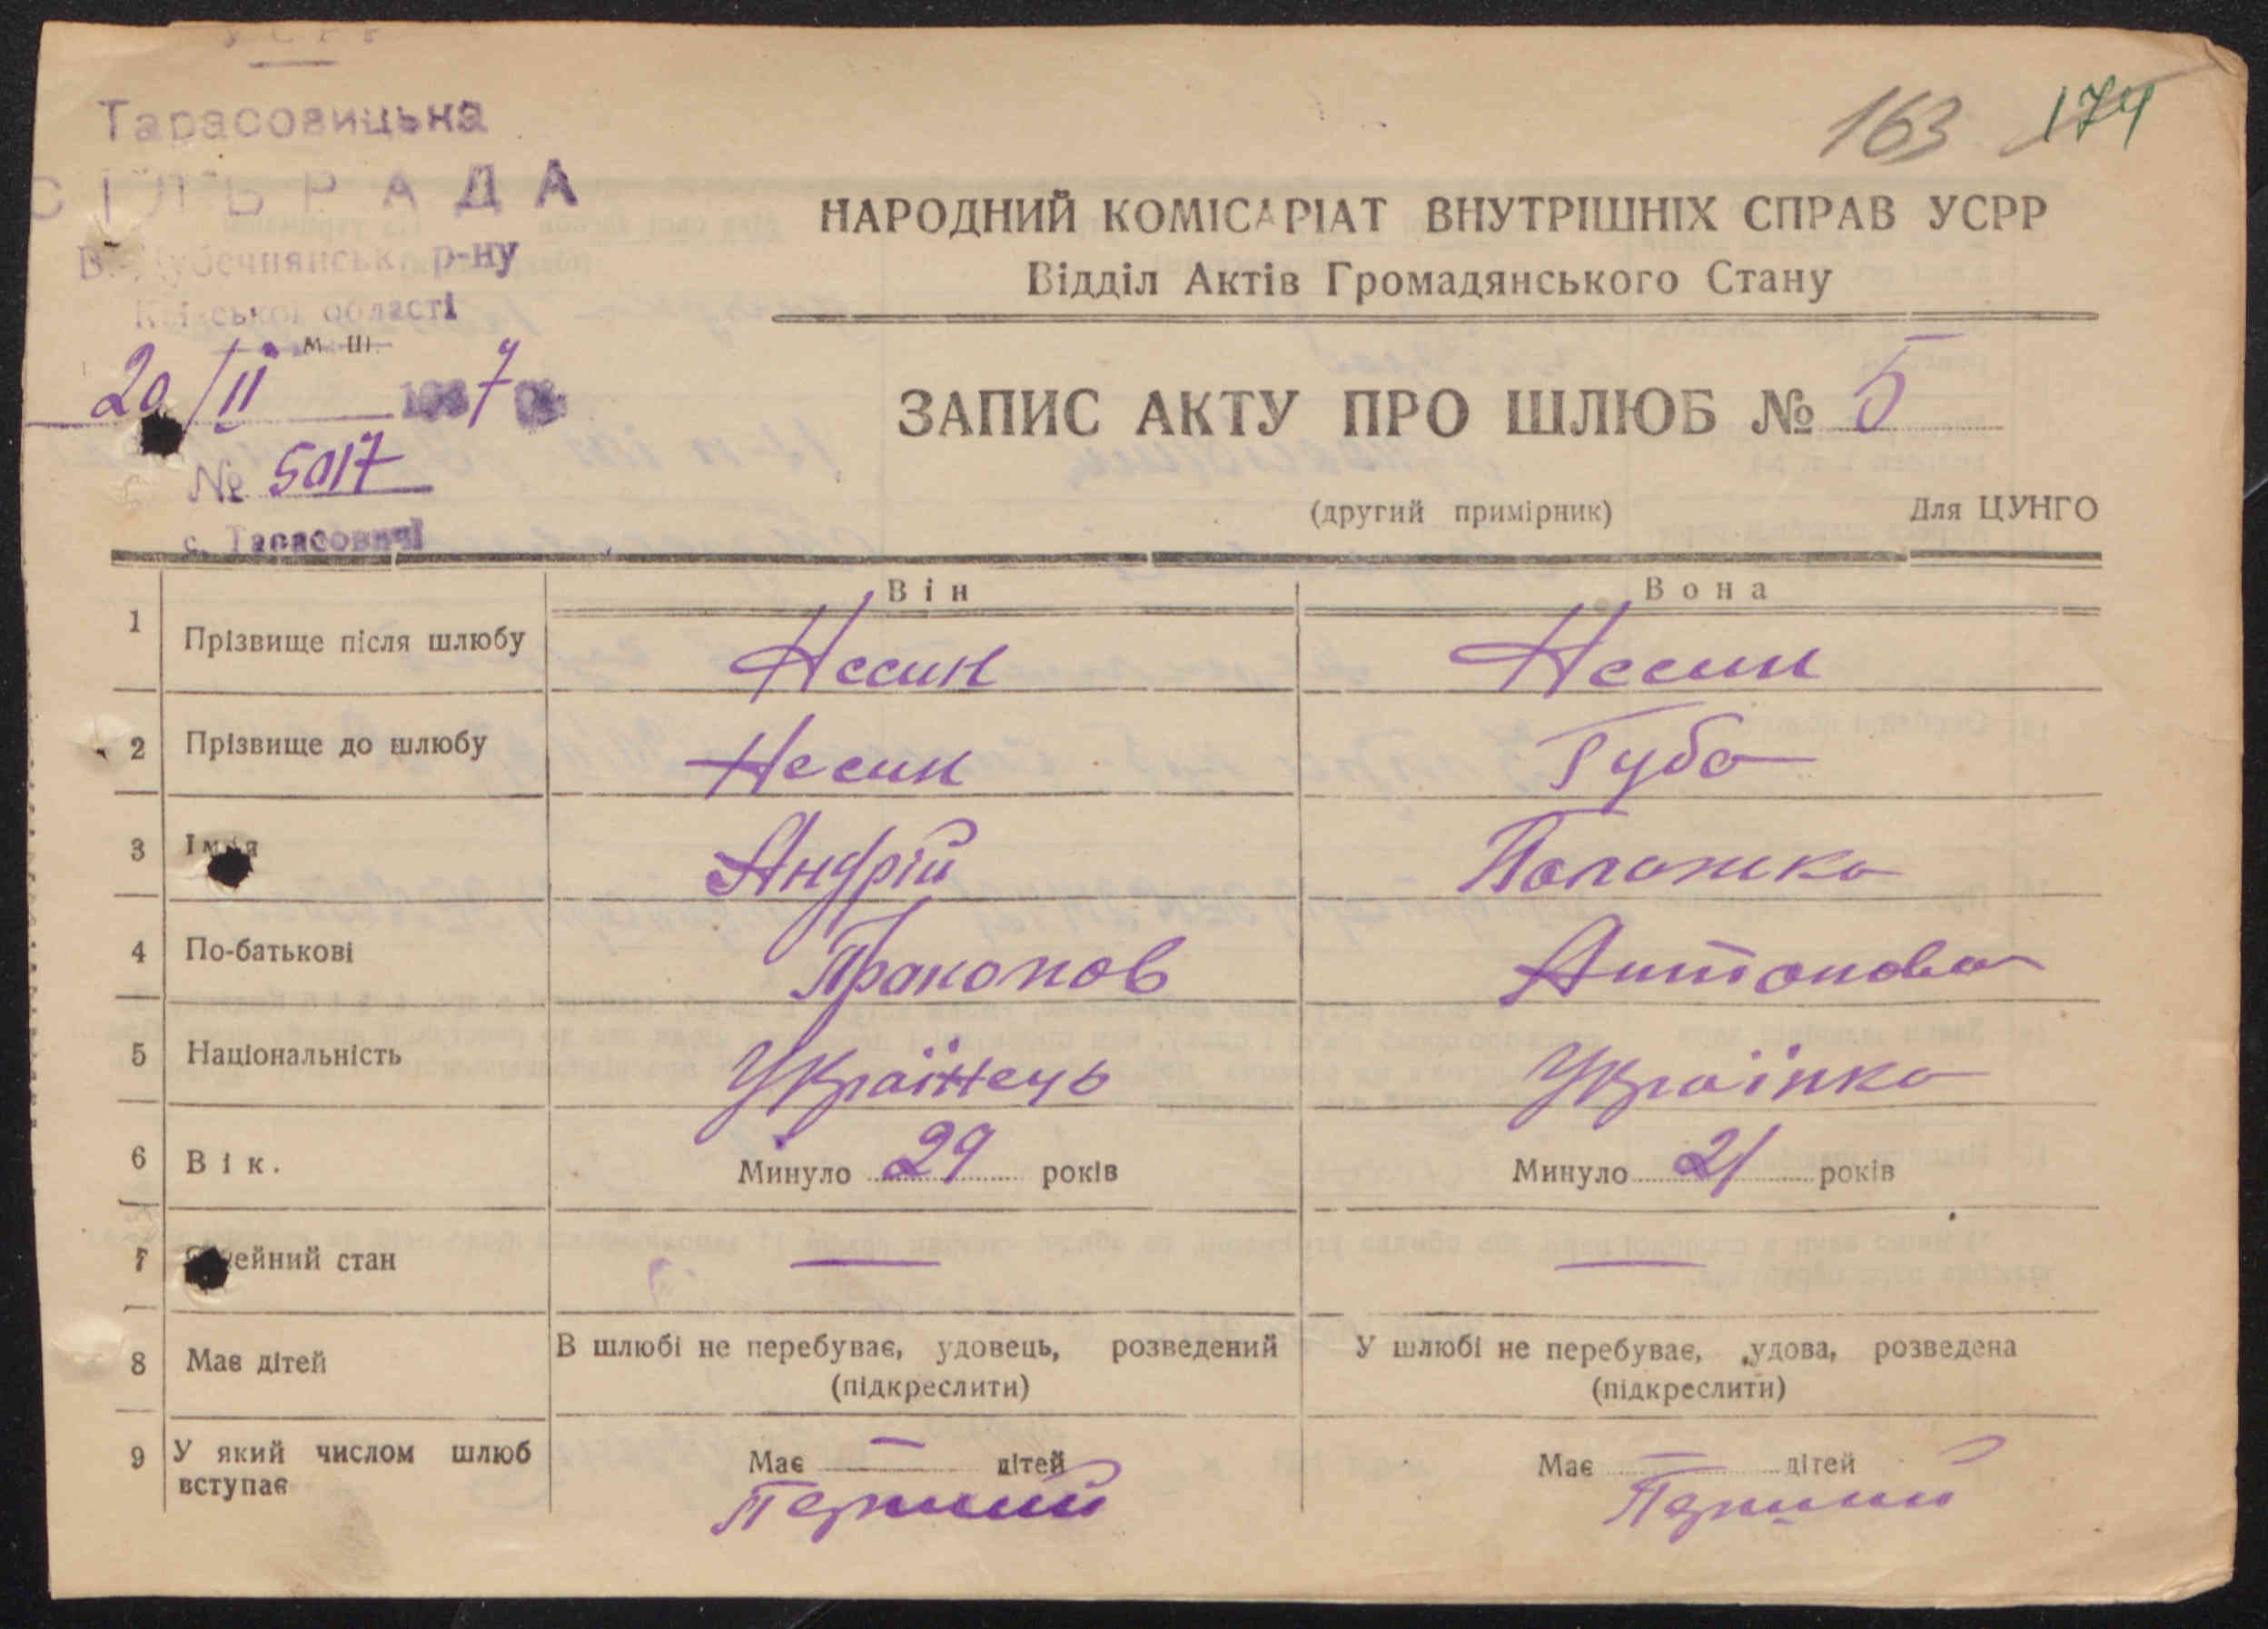 УСРР
Тарасовицька
163 174
СІЛЬРАДА
НАРОДНИЙ КОМІСАРІАТ ВНУТРІШНІХ СПРАВ УСРР
р-ну
Відділ Актів Громадянського Стану
області
м. ш.
20/II 1937
ЗАПИС АКТУ ПРО ШЛЮБ № 5
№ 5017
(другий примірник) Для ЦУНГО
с. Тарасовичі
Він Вона
1 Прізвище після шлюбу Несин Несин
2 Прізвище до шлюбу Несин Губа
3 Імя Андрій Палажка
4 По-батькові Праконов Антонова
5 Національність Українець Українка
6 Вік. Минуло 29 років Минуло 21 років
7 ейний стан — —
8 Має дітей В шлюбі не перебуває, удовець, розведений У шлюбі не перебуває, удова, розведена
(підкреслити) (підкреслити)
9 У який числом шлюб вступає Має — дітей Має — дітей
Перший Перший